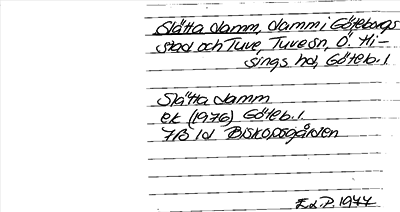 Slätta damm, damm i Göteborgs
stad och Tuve, Tuve sn, Ö. Hi-
sings hd, Göteb. l.
Slätta damm
ek (1976) Göteb. l.
7B 1d Biskopsgården
E.d.P. 1977